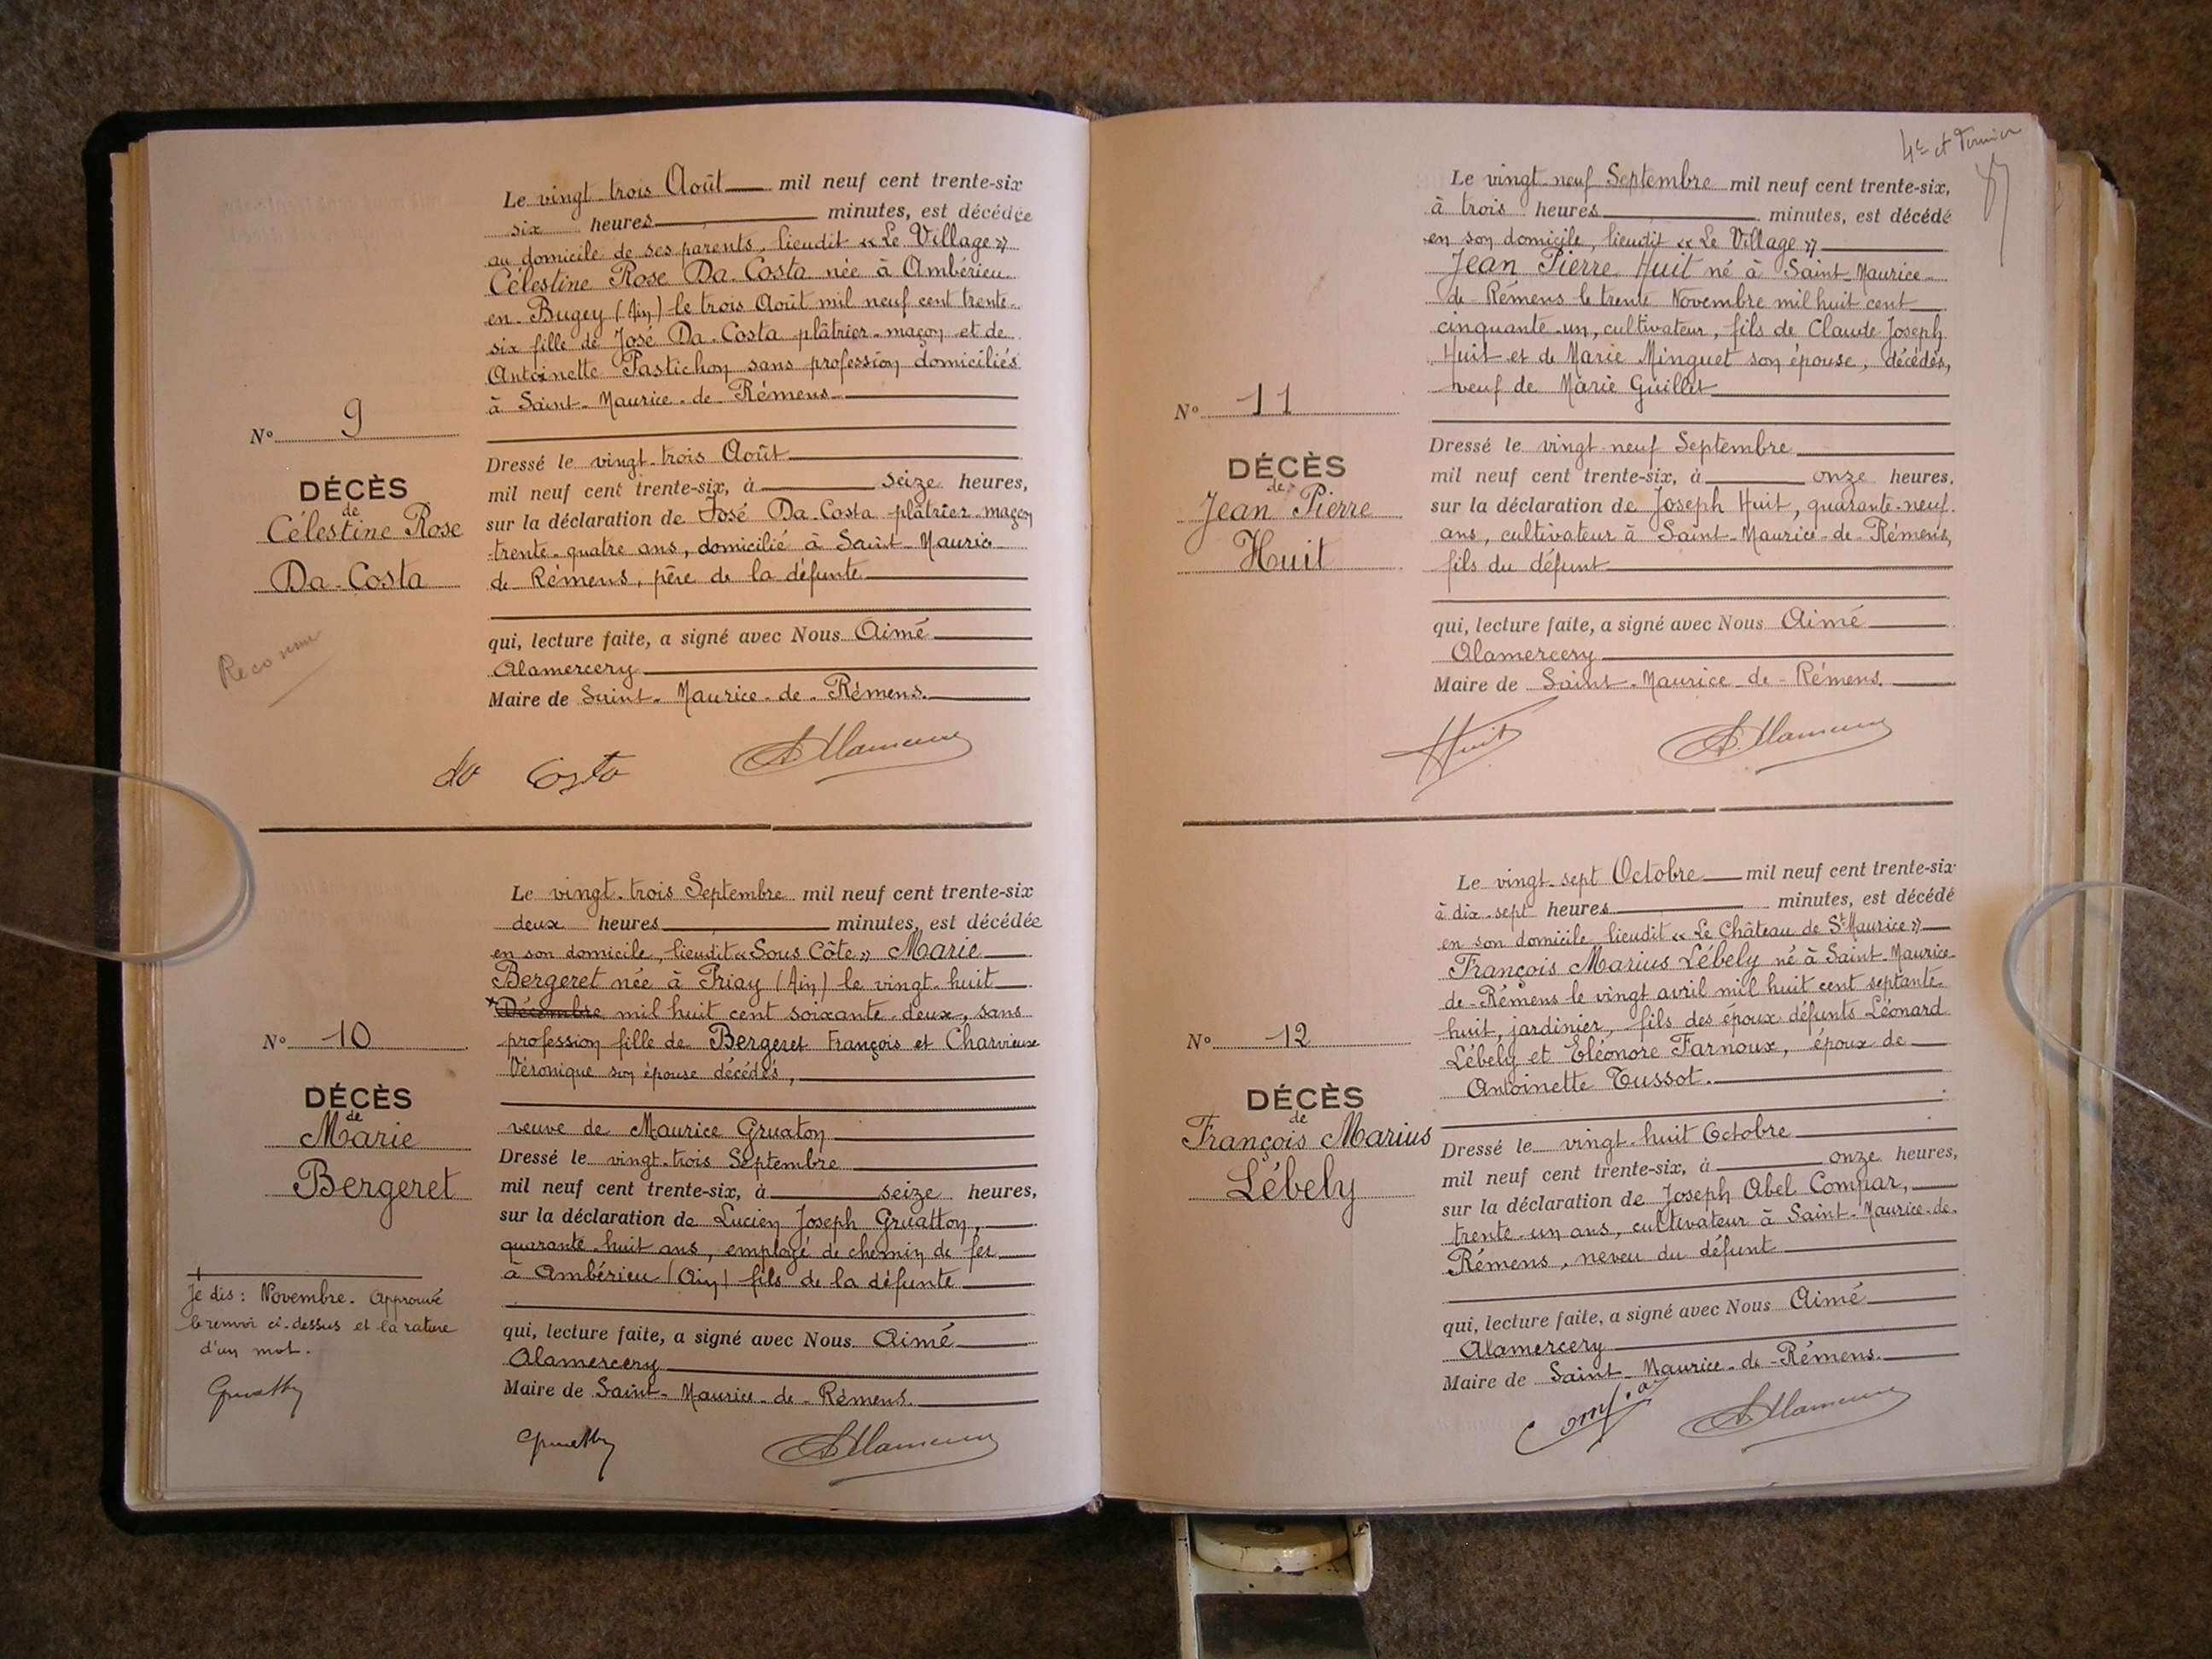 Le vingt-trois Août mil neuf cent trente-six
six heures minutes, est décédée
au domicile de ses parents, lieudit «Le Village»
Célestine Rose Da-Costa née à Ambérieu-
en-Bugey (Ain) le trois Août mil neuf cent trente-
six fille de José Da-Costa plâtrier-maçon et de
Antoinette Pastichon sans profession domiciliés
à Saint-Maurice-de-Rémens
N° 9
DÉCÈS
de
Célestine Rose
Da-Costa
Reconnue
Dressé le vingt-trois Août
mil neuf cent trente-six, à seize heures,
sur la déclaration de José Da-Costa plâtrier-maçon
trente-quatre ans, domicilié à Saint-Maurice
de Rémens, père de la défunte
qui, lecture faite, a signé avec Nous Aimé
Alamercery
Maire de Saint-Maurice-de-Rémens.
da Costa
Le vingt-trois Septembre mil neuf cent trente-six
deux heures minutes, est décédée
en son domicile, lieudit «Sous Côte» Marie
Bergeret née à Priay (Ain) le vingt-huit
Décembre mil huit cent soixante-deux, sans
profession fille de Bergeret François et Charvieux
Véronique son épouse décédés,
veuve de Maurice Gruaton
N° 10
DÉCÈS
de
Marie
Bergeret
Je dis: Novembre. Approuvé
le renvoi ci-dessus et la rature
d'un mot.
Dressé le vingt-trois Septembre
mil neuf cent trente-six, à seize heures,
sur la déclaration de Lucien Joseph Gruatton,
quarante-huit ans, employé de chemin de fer
à Ambérieu (Ain) fils de la défunte
qui, lecture faite, a signé avec Nous Aimé
Alamercery
Maire de Saint-Maurice-de-Rémens.
4e et dernier
Le vingt-neuf Septembre mil neuf cent trente-six,
à trois heures minutes, est décédé
en son domicile, lieudit «Le Village»
Jean Pierre Huit né à Saint-Maurice-
de Rémens le trente Novembre mil huit cent
cinquante-un, cultivateur, fils de Claude Joseph
Huit et de Marie Minguet son épouse, décédés,
veuf de Marie Guillet
N° 11
DÉCÈS
de
Jean Pierre
Huit
Dressé le vingt-neuf Septembre
mil neuf cent trente-six, à onze heures,
sur la déclaration de Joseph Huit, quarante-neuf
ans, cultivateur à Saint-Maurice-de-Rémens,
fils du défunt
qui, lecture faite, a signé avec Nous Aimé
Alamercery
Maire de Saint-Maurice-de-Rémens.
Huit
Le vingt-sept Octobre mil neuf cent trente-six
à dix-sept heures minutes, est décédé
en son domicile lieudit «Le Château de St Maurice»
François Marius Lébely né à Saint-Maurice-
de-Rémens le vingt avril mil huit cent septante-
huit, jardinier, fils des époux défunts Léonard
Lébely et Eléonore Farnoux, époux de
Antoinette Tussot.
N° 12
DÉCÈS
de
François Marius
Lébely
Dressé le vingt-huit Octobre
mil neuf cent trente-six, à onze heures,
sur la déclaration de Joseph Abel Compar,
trente-un ans, cultivateur à Saint-Maurice-de-
Rémens, neveu du défunt
qui, lecture faite, a signé avec Nous Aimé
Alamercery
Maire de Saint-Maurice-de-Rémens.